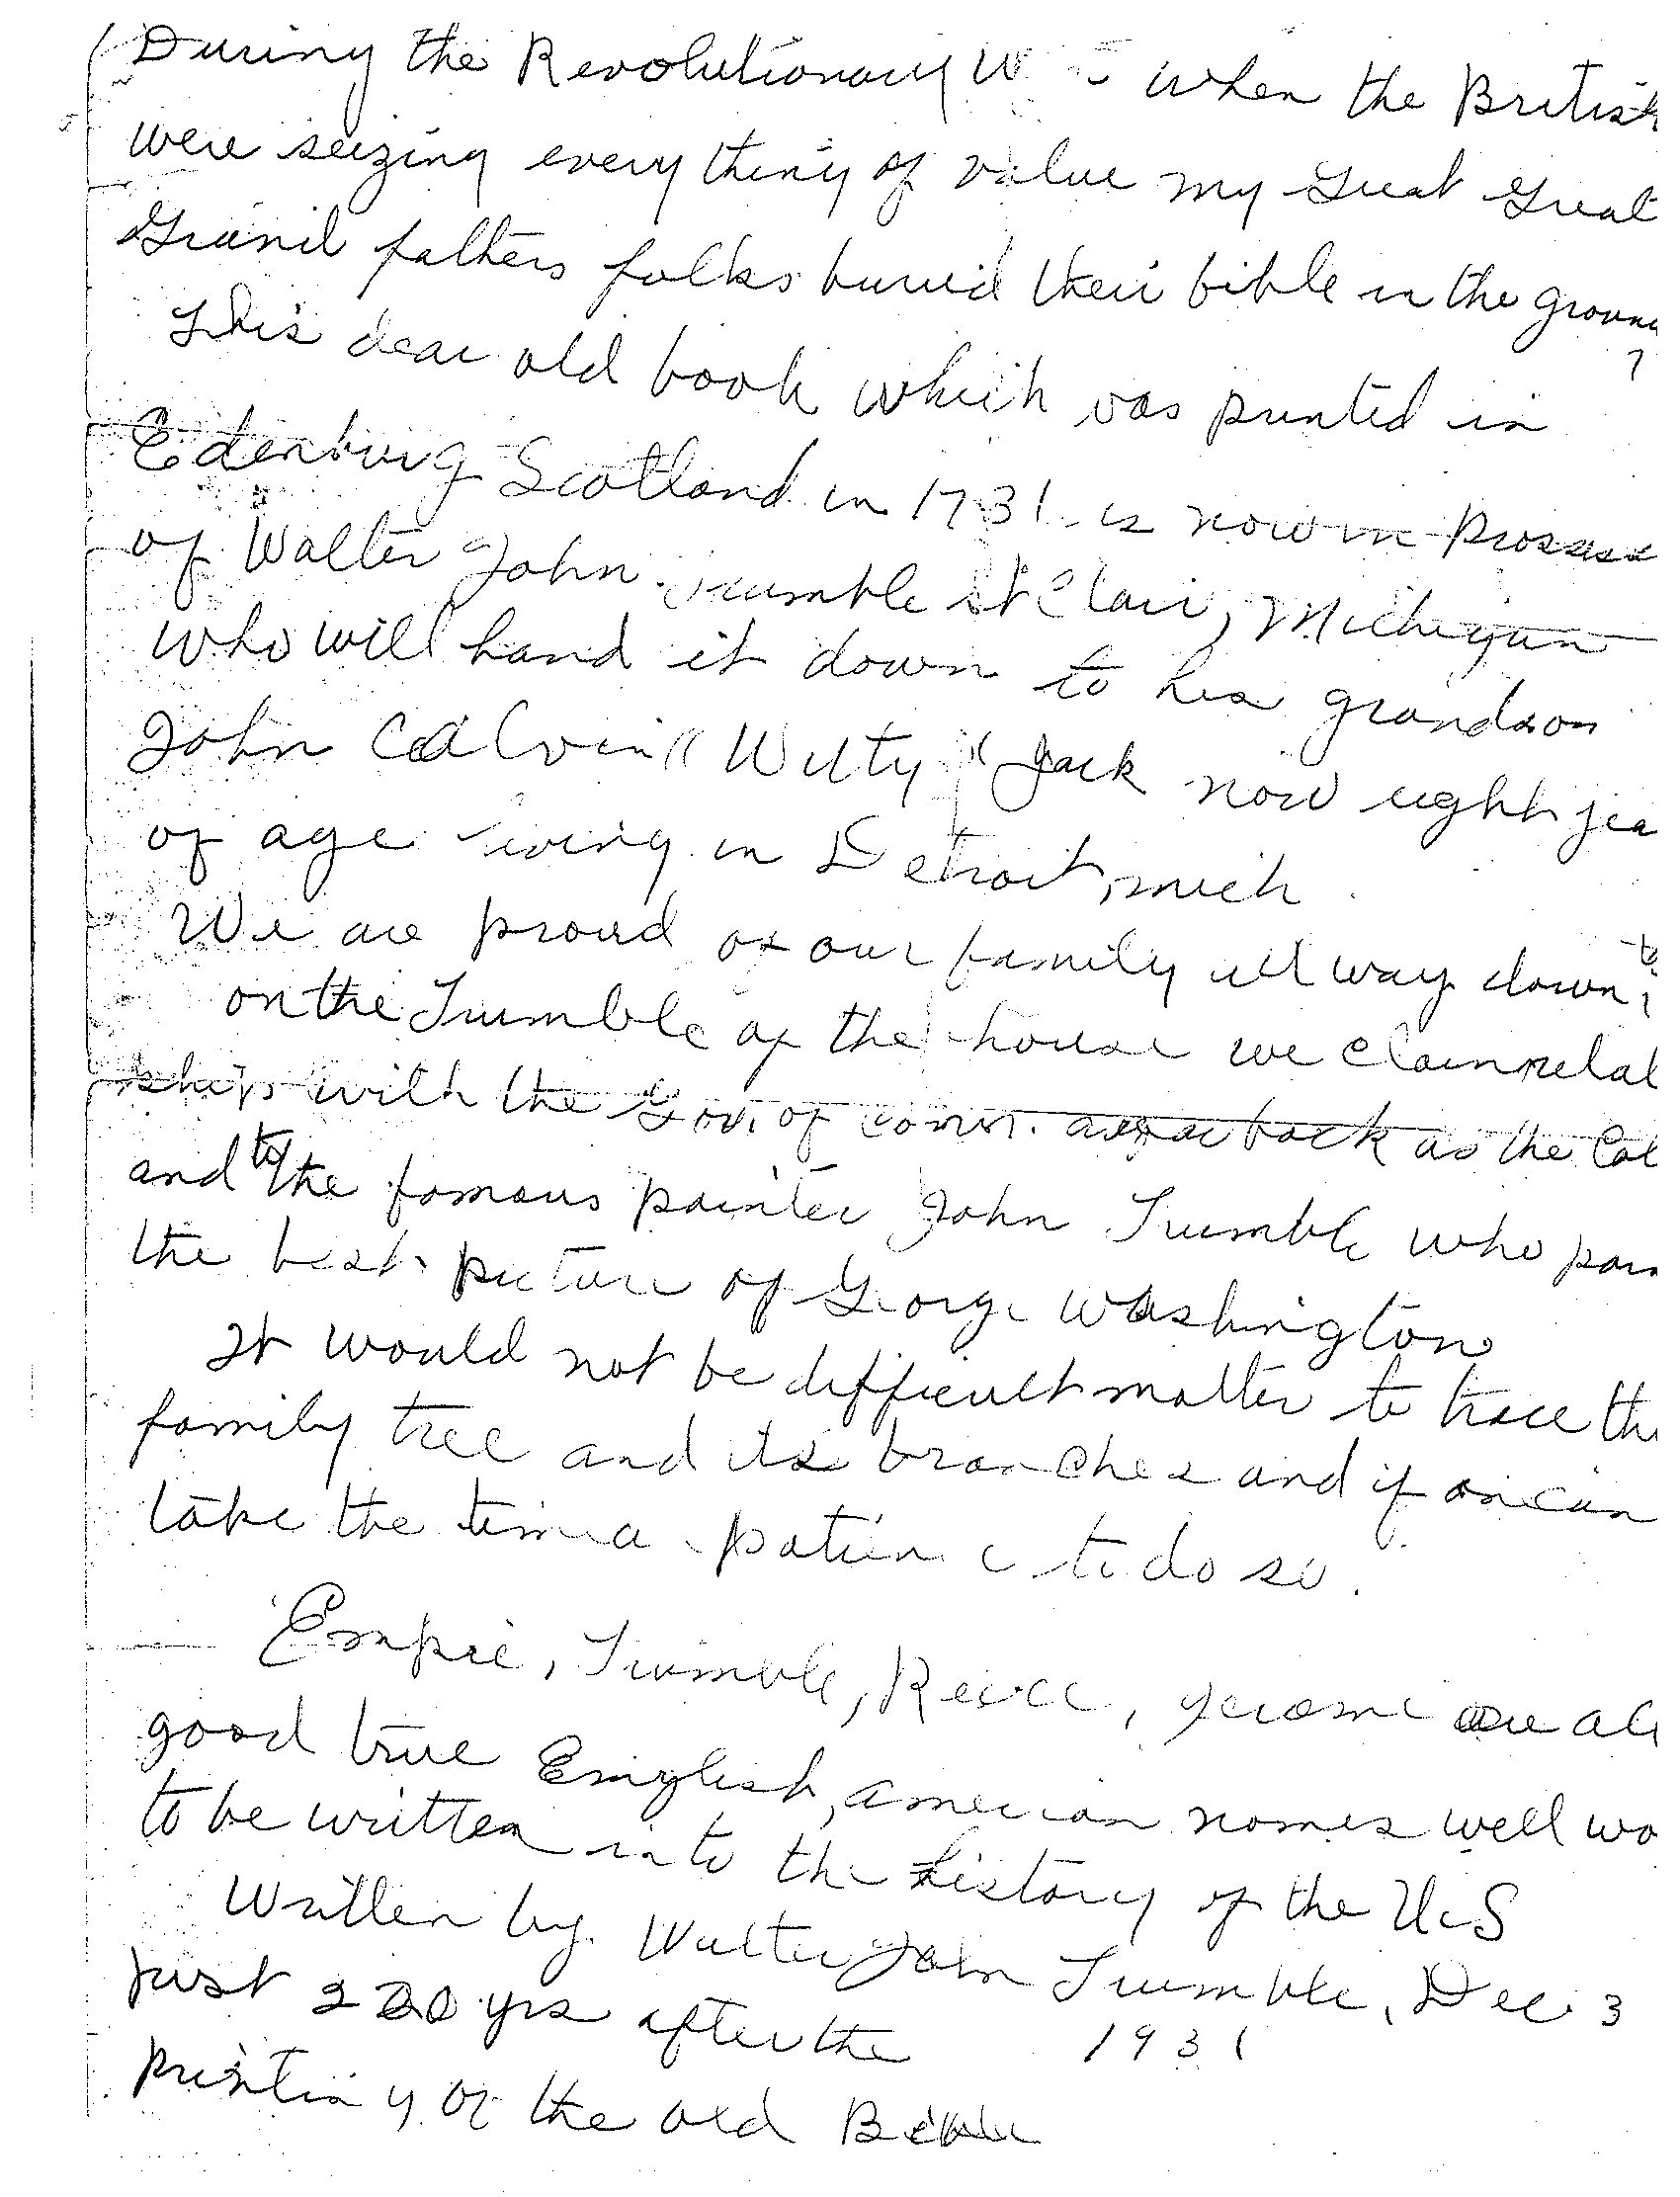 During the Revolutionary W when the British
were seizing every thing of value my Great Great
Grand fathers folks buried their bible in the ground
This dear old book which was printed in
Edenburg Scotland in 1731 is now in Prosess
of Walter John Trumble St Clair, Michigan
who will hand it down to his grandson
John Calvin "Witty" Jack now eight yea
of age living in Detroit, mich.
We are proud of our family all way down to
on the Trumble of the house we claim relat
ships with the Gov. of Conn. as back as the Col
and to the famous painter John Trumble who pain
the best picture of George Washington
It would not be difficult matter to trace the
family tree and its branches and if can
take the time patience to do so.
Empie, Trumble, Reece, Jerome are all
good true English, American names well wo
to be written into the history of the U.S
Written by Walter John Trumble, Dec 3
1931
Just 200 yrs after the
printing of the old Bible